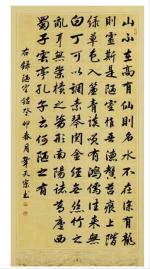 山不在高有仙則名水不在深有龍
則靈斯是陋室惟吾德馨苔痕上階
綠草色入簾青談笑有鴻儒往來無
白丁可以調素琴閱金經無絲竹之
亂耳無案牘之勞形南陽諸葛廬西
蜀子雲亭孔子云何陋之有
右錄陋室銘癸卯春月天書